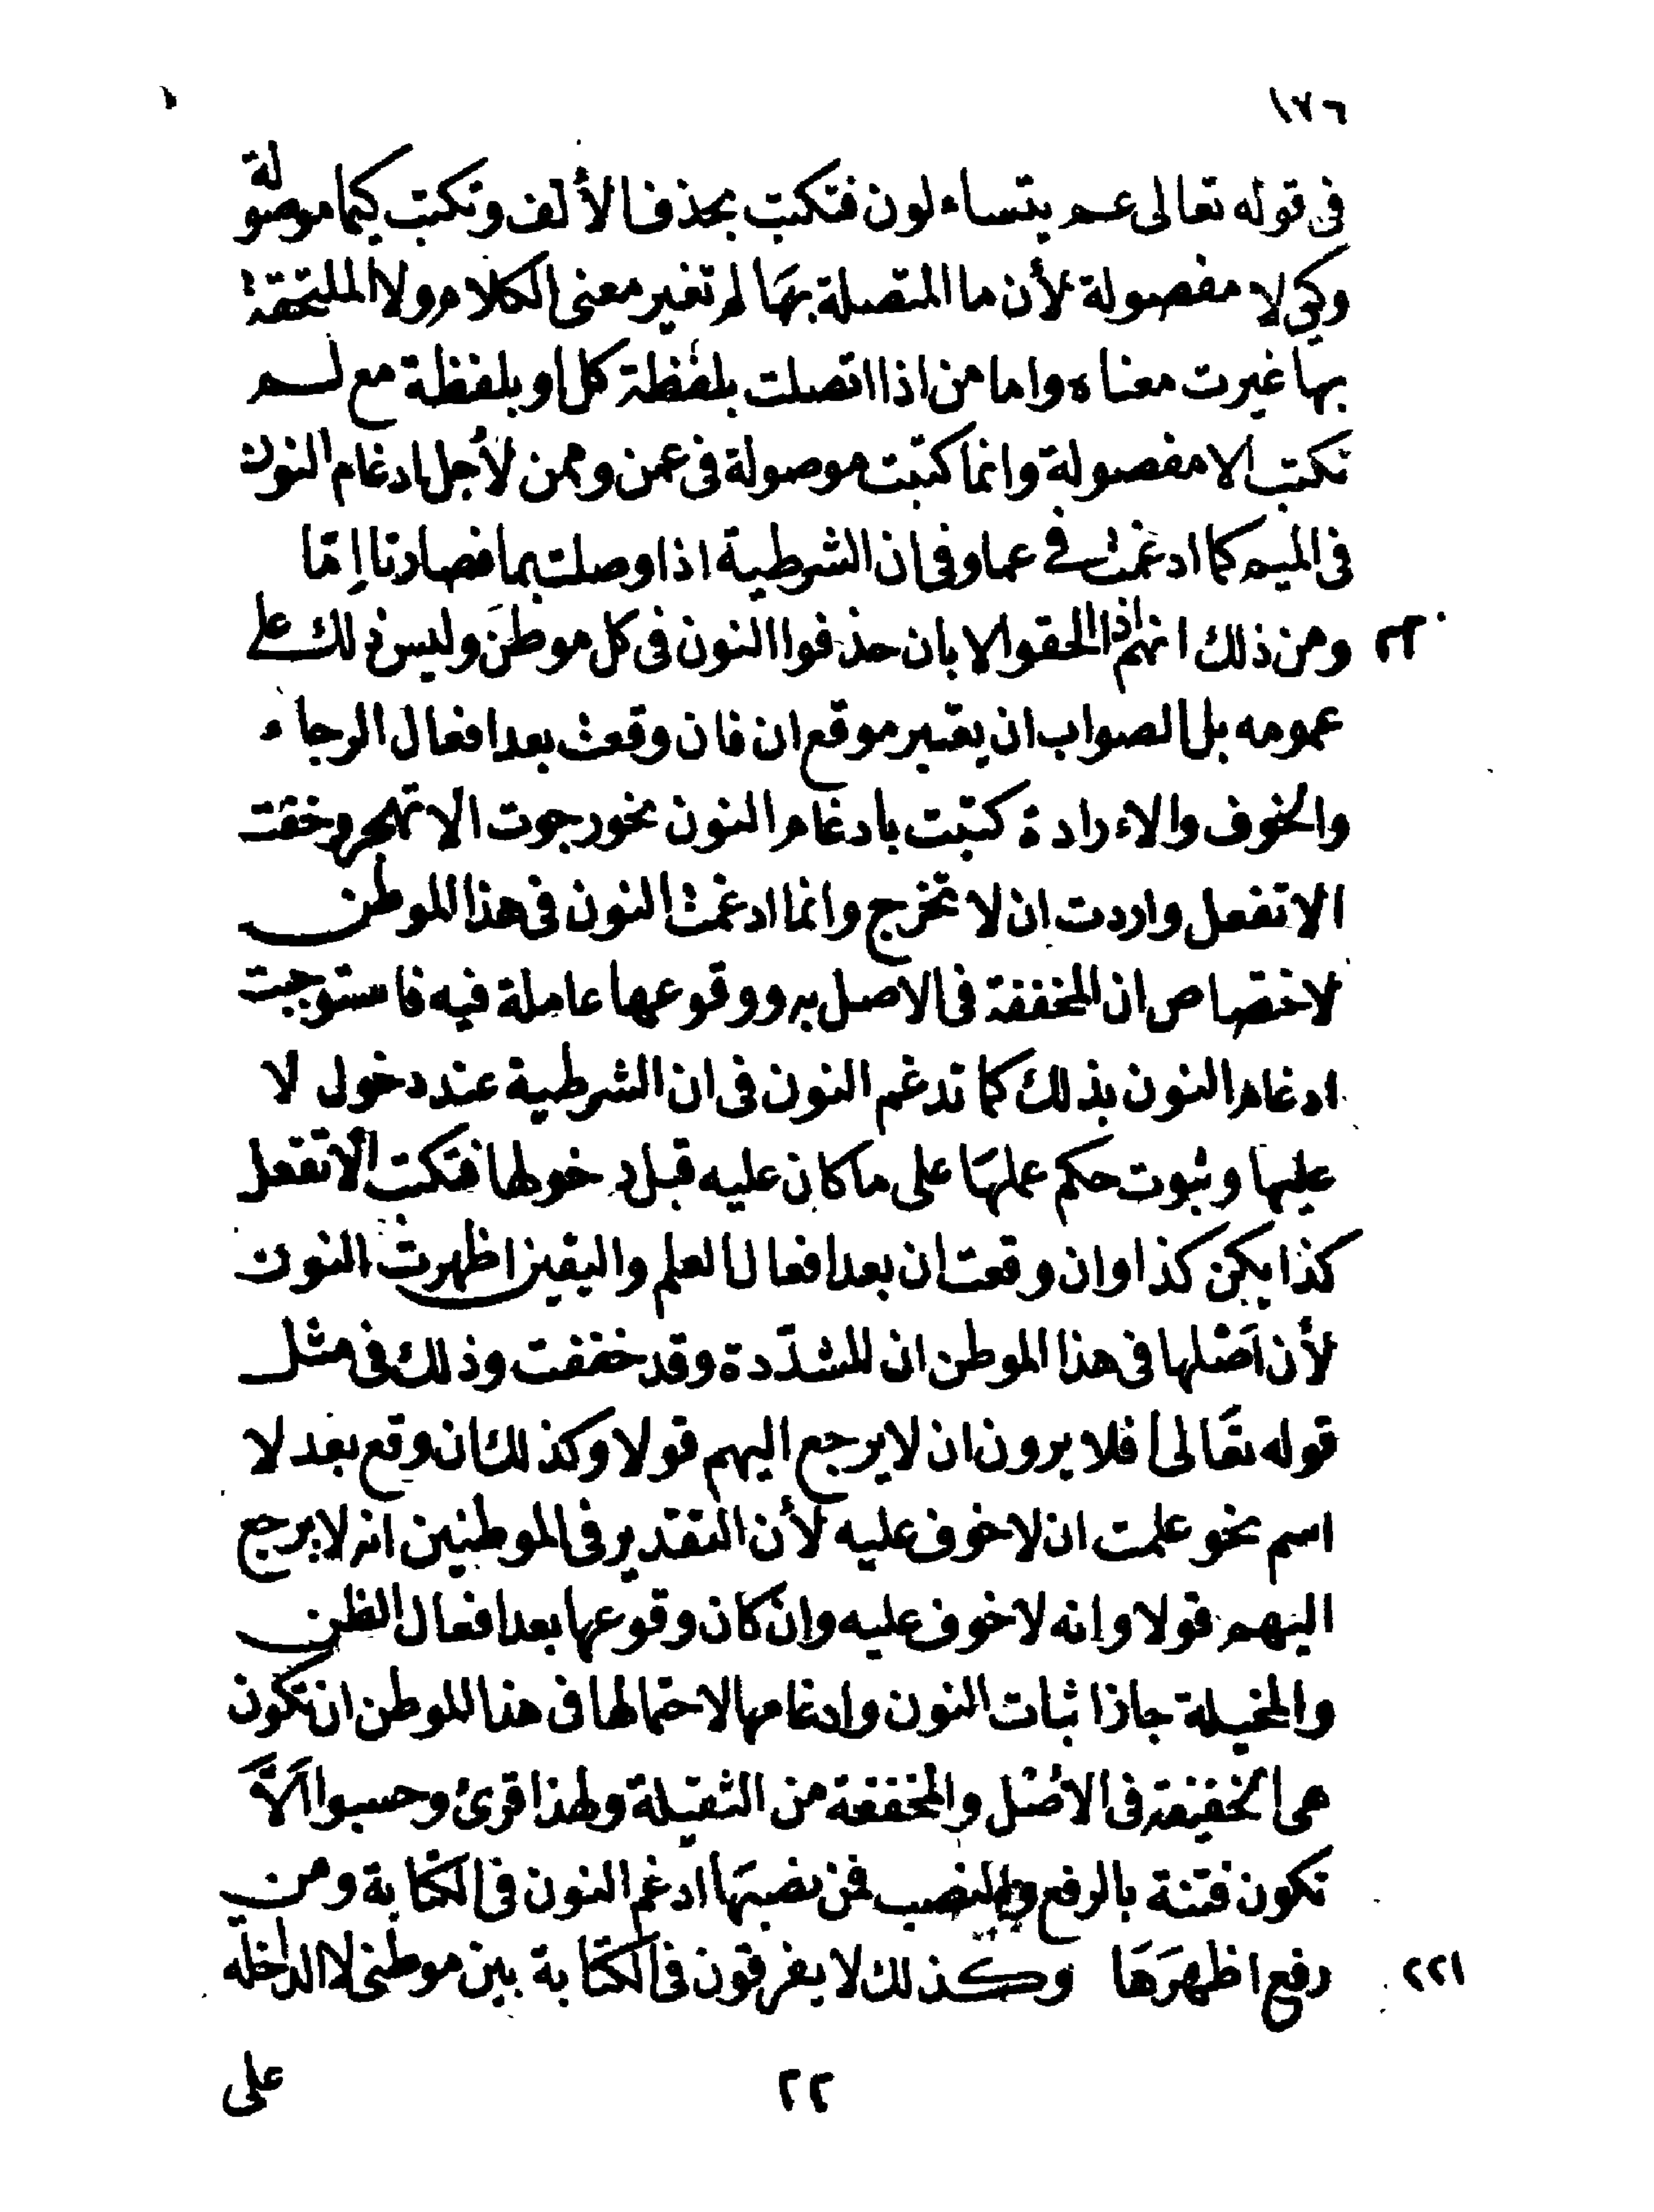 ١٧٦
فى قوله تعالى عم يتساءلون فتكتب بحذف الألف وتكتب كيما موصولة
وكي لا مفصولة لأن ما المتصلة بها لم تغير معنى الكلام ولا الملتحقة
بها غيرت معناه واما من اذا اتصلت بلفظة كل او بلفظة مع لم
تكتب الا مفصولة وانما كتبت موصولة فى عمن وممن لأجل ادغام النون
فى الميم كما ادغمت فى عما وفى ان الشرطية اذا وصلت بما فصارتا إمّا
٢٢٠ ومن ذلك انهم اذا الحقوا لا بان حذفوا النون فى كل موطن وليس ذلك على
عمومه بل الصواب ان يعتبر موقع ان فان وقعت بعد افعال الرجاء
والخوف والاءرادة كتبت بادغام النون نحو رجوت الا تهجر وخفت
الا تفعل واردت ان لا تخرج وانما ادغمت النون فى هذا الموطن
لاختصاص ان المخففة فى الاصل به ووقوعها عاملة فيه فاستوجبت
ادغام النون بذلك كما تدغم النون فى ان الشرطية عند دخول لا
عليها وثبوت حكم عملها على ما كان عليه قبل دخولها فتكتب الا تفعل
كذا يكن كذا وان وقعت ان بعد افعال العلم واليقين اظهرت النون
لأن اصلها فى هذا الموطن ان المشدّدة وقد خففت وذلك فى مثل
قوله تعالى افلا يرون ان لا يرجع اليهم قولا وكذلك ان وقع بعد لا
اسم نحو علمت ان لا خوف عليه لأن التقدير فى الموطنين انه لا يرجع
اليهم قولا وانه لا خوف عليه وان كان وقوعها بعد افعال الظن
والمخيلة جاز اثبات النون وادغامها لاحتمالها فى هذا الموطن ان تكون
هى الخفيفة فى الأصل والمخففة من الثقيلة ولهذا قرئ وحسبوا الاّ
تكون فتنة بالرفع والنصب فمن نصبها ادغم النون فى الكتابة ومن
٢٢١ رفع اظهرها وكذلك لا يفرقون فى الكتابة بين موطنى لا الداخلة
على
٢٢